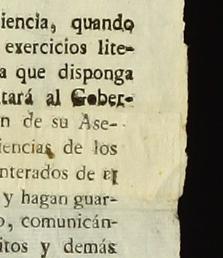 iencia, quando
exercicios lite-
a que disponga
tará al Gober-
n de su Ase-
iencias de los
nterados de el
y hagan guar-
o, comunicán-
itos y demás